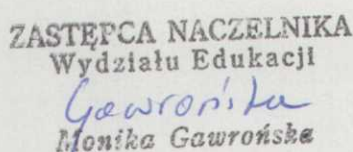 ZASTĘPCA NACZELNIKA
Wydziału Edukacji
Gawrońska
Monika Gawrońska